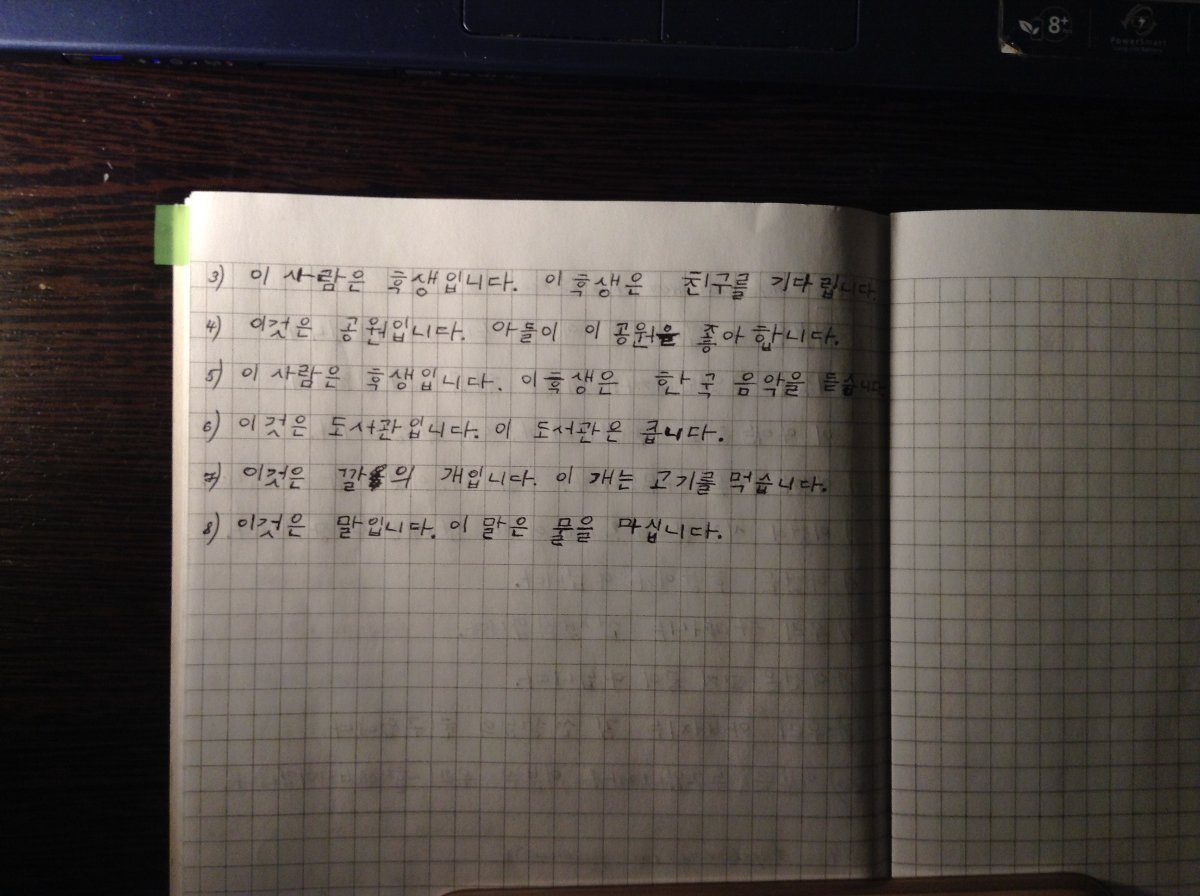 8+
PowerSmart
3) 이 사람은 흑생입니다. 이 흑생은 친구를 기다립니다.
4) 이것은 공원입니다. 아들이 이 공원을 좋아합니다.
5) 이 사람은 흑생입니다. 이 흑생은 한국 음악을 듣습니다
6) 이것은 도서관입니다. 이 도서관은 큽니다.
7) 이것은 개입니다. 이 개는 고기를 먹습니다.
8) 이것은 말입니다. 이 말은 물을 마십니다.